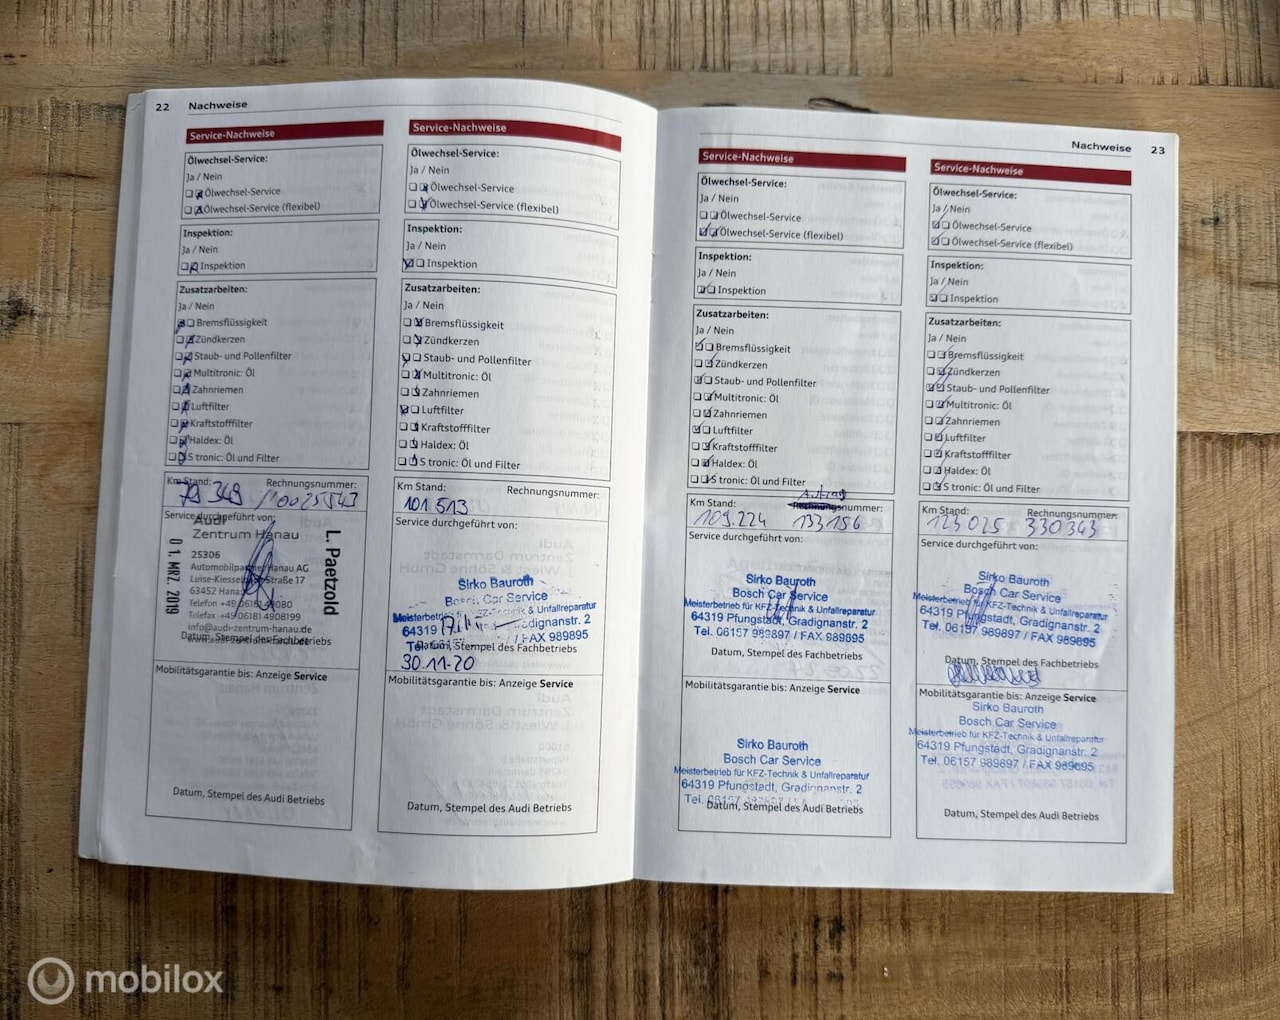 22 Nachweise
Service-Nachweise
Ölwechsel-Service:
Ja / Nein
Ölwechsel-Service
Ölwechsel-Service (flexibel)
Inspektion:
Ja / Nein
Inspektion
Zusatzarbeiten:
Ja / Nein
Bremsflüssigkeit
Zündkerzen
Staub- und Pollenfilter
Multitronic: Öl
Zahnriemen
Luftfilter
Kraftstofffilter
Haldex: Öl
S tronic: Öl und Filter
Km Stand: Rechnungsnummer:
79 349 110025543
Service durchgeführt von:
Audi
Zentrum Hanau
25306
Automobilpartner Hanau AG
Luise-Kiesselbach-Straße 17
63452 Hanau
Telefon +49 06181 49080
Telefax +49 06181 4908199
info@audi-zentrum-hanau.de
01. MRZ. 2019
L. Paetzold
Datum, Stempel des Fachbetriebs
Mobilitätsgarantie bis: Anzeige Service
Datum, Stempel des Audi Betriebs
Service-Nachweise
Ölwechsel-Service:
Ja / Nein
Ölwechsel-Service
Ölwechsel-Service (flexibel)
Inspektion:
Ja / Nein
Inspektion
Zusatzarbeiten:
Ja / Nein
Bremsflüssigkeit
Zündkerzen
Staub- und Pollenfilter
Multitronic: Öl
Zahnriemen
Luftfilter
Kraftstofffilter
Haldex: Öl
S tronic: Öl und Filter
Km Stand: Rechnungsnummer:
101 513
Service durchgeführt von:
Sirko Bauroth
Bosch Car Service
Meisterbetrieb für KFZ-Technik & Unfallreparatur
64319 Gradignanstr. 2
/ FAX 989895
Datum, Stempel des Fachbetriebs
30.11.20
Mobilitätsgarantie bis: Anzeige Service
Datum, Stempel des Audi Betriebs
Nachweise 23
Service-Nachweise
Ölwechsel-Service:
Ja / Nein
Ölwechsel-Service
Ölwechsel-Service (flexibel)
Inspektion:
Ja / Nein
Inspektion
Zusatzarbeiten:
Ja / Nein
Bremsflüssigkeit
Zündkerzen
Staub- und Pollenfilter
Multitronic: Öl
Zahnriemen
Luftfilter
Kraftstofffilter
Haldex: Öl
S tronic: Öl und Filter
Km Stand: Rechnungsnummer:
109.224 133156
Service durchgeführt von:
Sirko Bauroth
Bosch Car Service
Meisterbetrieb für KFZ-Technik & Unfallreparatur
64319 Pfungstadt, Gradignanstr. 2
Tel. 06157 989897 / FAX 989895
Datum, Stempel des Fachbetriebs
Mobilitätsgarantie bis: Anzeige Service
Sirko Bauroth
Bosch Car Service
Meisterbetrieb für KFZ-Technik & Unfallreparatur
64319 Pfungstadt, Gradignanstr. 2
Tel. 06157
Datum, Stempel des Audi Betriebs
Service-Nachweise
Ölwechsel-Service:
Ja / Nein
Ölwechsel-Service
Ölwechsel-Service (flexibel)
Inspektion:
Ja / Nein
Inspektion
Zusatzarbeiten:
Ja / Nein
Bremsflüssigkeit
Zündkerzen
Staub- und Pollenfilter
Multitronic: Öl
Zahnriemen
Luftfilter
Kraftstofffilter
Haldex: Öl
S tronic: Öl und Filter
Km Stand: Rechnungsnummer:
123 025 330 343
Service durchgeführt von:
Sirko Bauroth
Bosch Car Service
Meisterbetrieb für KFZ-Technik & Unfallreparatur
64319 Pfungstadt, Gradignanstr. 2
Tel. 06157 989897 / FAX 989895
Datum, Stempel des Fachbetriebs
Mobilitätsgarantie bis: Anzeige Service
Sirko Bauroth
Bosch Car Service
Meisterbetrieb für KFZ-Technik & Unfallreparatur
64319 Pfungstadt, Gradignanstr. 2
Tel. 06157 989897 / FAX 989895
Datum, Stempel des Audi Betriebs
mobilox